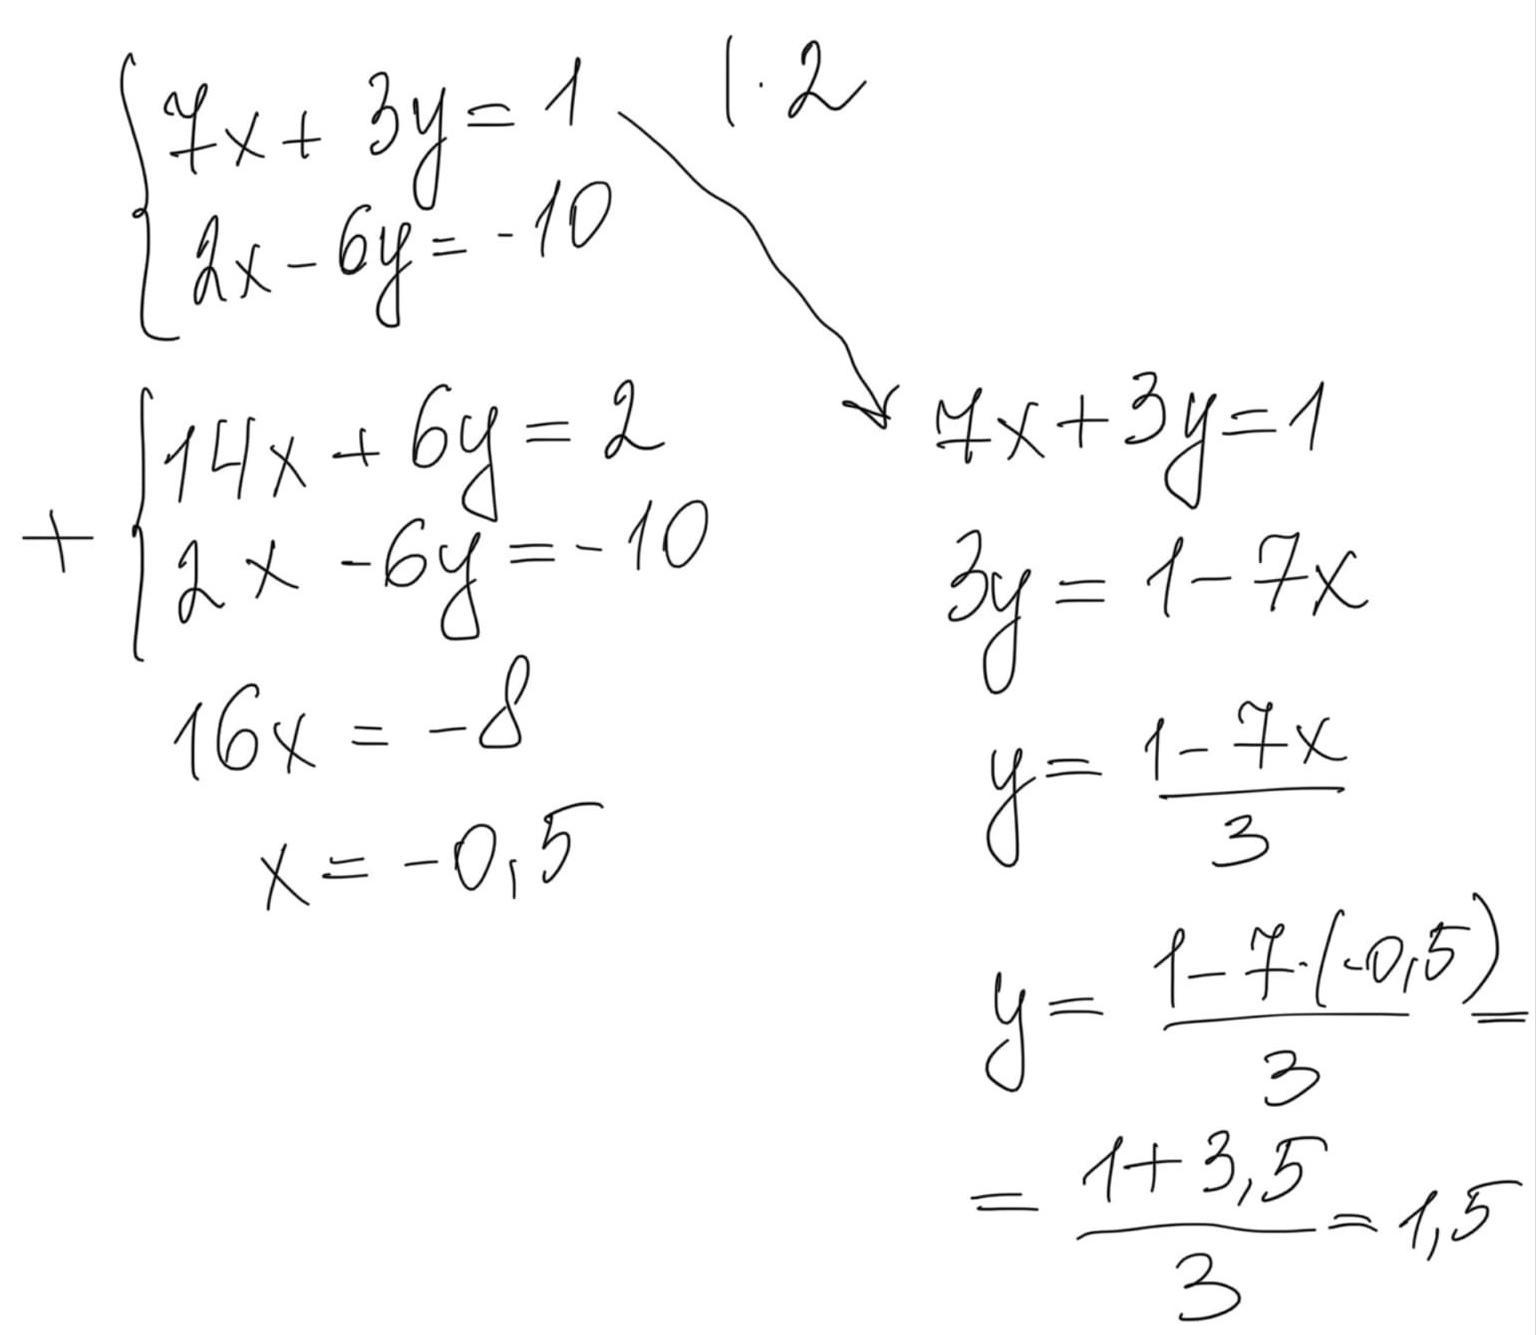 7x + 3y = 1 | · 2
2x - 6y = -10
14x + 6y = 2
+
2x - 6y = -10
16x = -8
x = -0,5
7x + 3y = 1
3y = 1 - 7x
y = \frac{1 - 7x}{3}
y = \frac{1 - 7·(-0,5)}{3} =
= \frac{1 + 3,5}{3} = 1,5